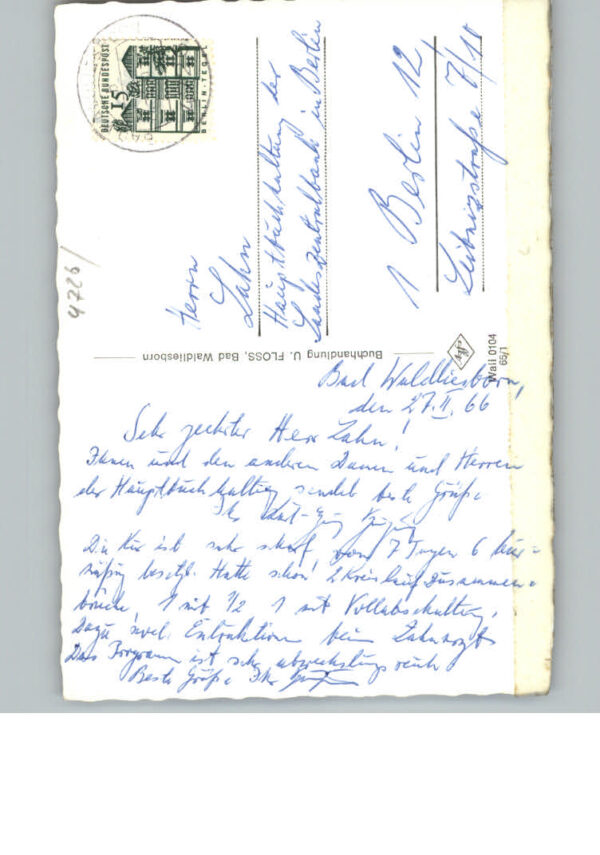 DEUTSCHE BUNDESPOST
15
BERLIN-TEGEL
4726/
Herrn
Zahn
Hauptbuchhaltung der
Landeszentralbank in Berlin
1 Berlin 12,
Leibnizstraße 7/10
Buchhandlung U. FLOSS, Bad Waldliesborn
Wall 0104
65/1
Bad Waldliesborn,
den 27.II.66
Sehr geehrter Herr Zahn!
Ihnen und den anderen Damen und Herren
der Hauptbuchhaltung sendet beste Grüße
Ihr
Die Kur ist sehr scharf, von 7 Tagen 6 kur-
mäßig besetzt. Hatte schon 2 Kreislaufzusammen-
brüche, 1 mit 1/2 1 mit Vollabschaltung.
Dazu 
Extraktion beim Zahnarzt
Das Programm ist sehr abwechslungsreich
Beste Grüße Ihr